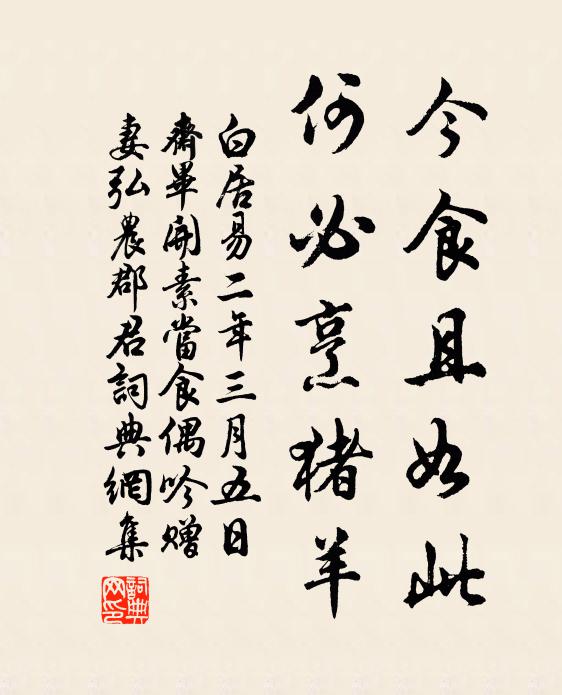 今食且如此
何必烹猪羊
白居易二年三月五日
齋畢開素當食偶吟贈
妻弘農郡君詞典網集
詞典
网印